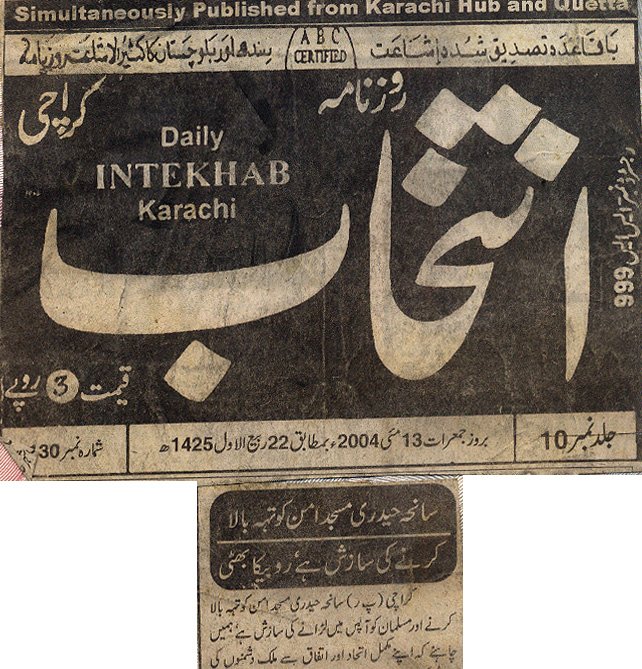 Simultaneously Published from Karachi Hub and Quetta
باقاعدہ تصدیق شدہ اشاعت
ABC
CERTIFIED
سندھ اور بلوچستان کا کثیر الاشاعت روزنامہ
روزنامہ
کراچی
انتخاب
Daily
INTEKHAB
Karachi
رجسٹرڈ نمبر ایس ایس 999
قیمت 3 روپے
جلد نمبر 10
بروز جمعرات 13 مئی 2004ء بمطابق 22 ربیع الاول 1425ھ
شمارہ نمبر 30
سانحہ حیدری مسجد امن کو تہہ بالا
کرنے کی سازش ہے ' روبیکا بھٹی
کراچی (پ ر) سانحہ حیدری مسجد امن کو تہہ بالا
کرنے اور مسلمان کو آپس میں لڑانے کی سازش ہے ہمیں
چاہئے کہ اپنے مکمل اتحاد اور اتفاق سے ملک دشمنوں کی